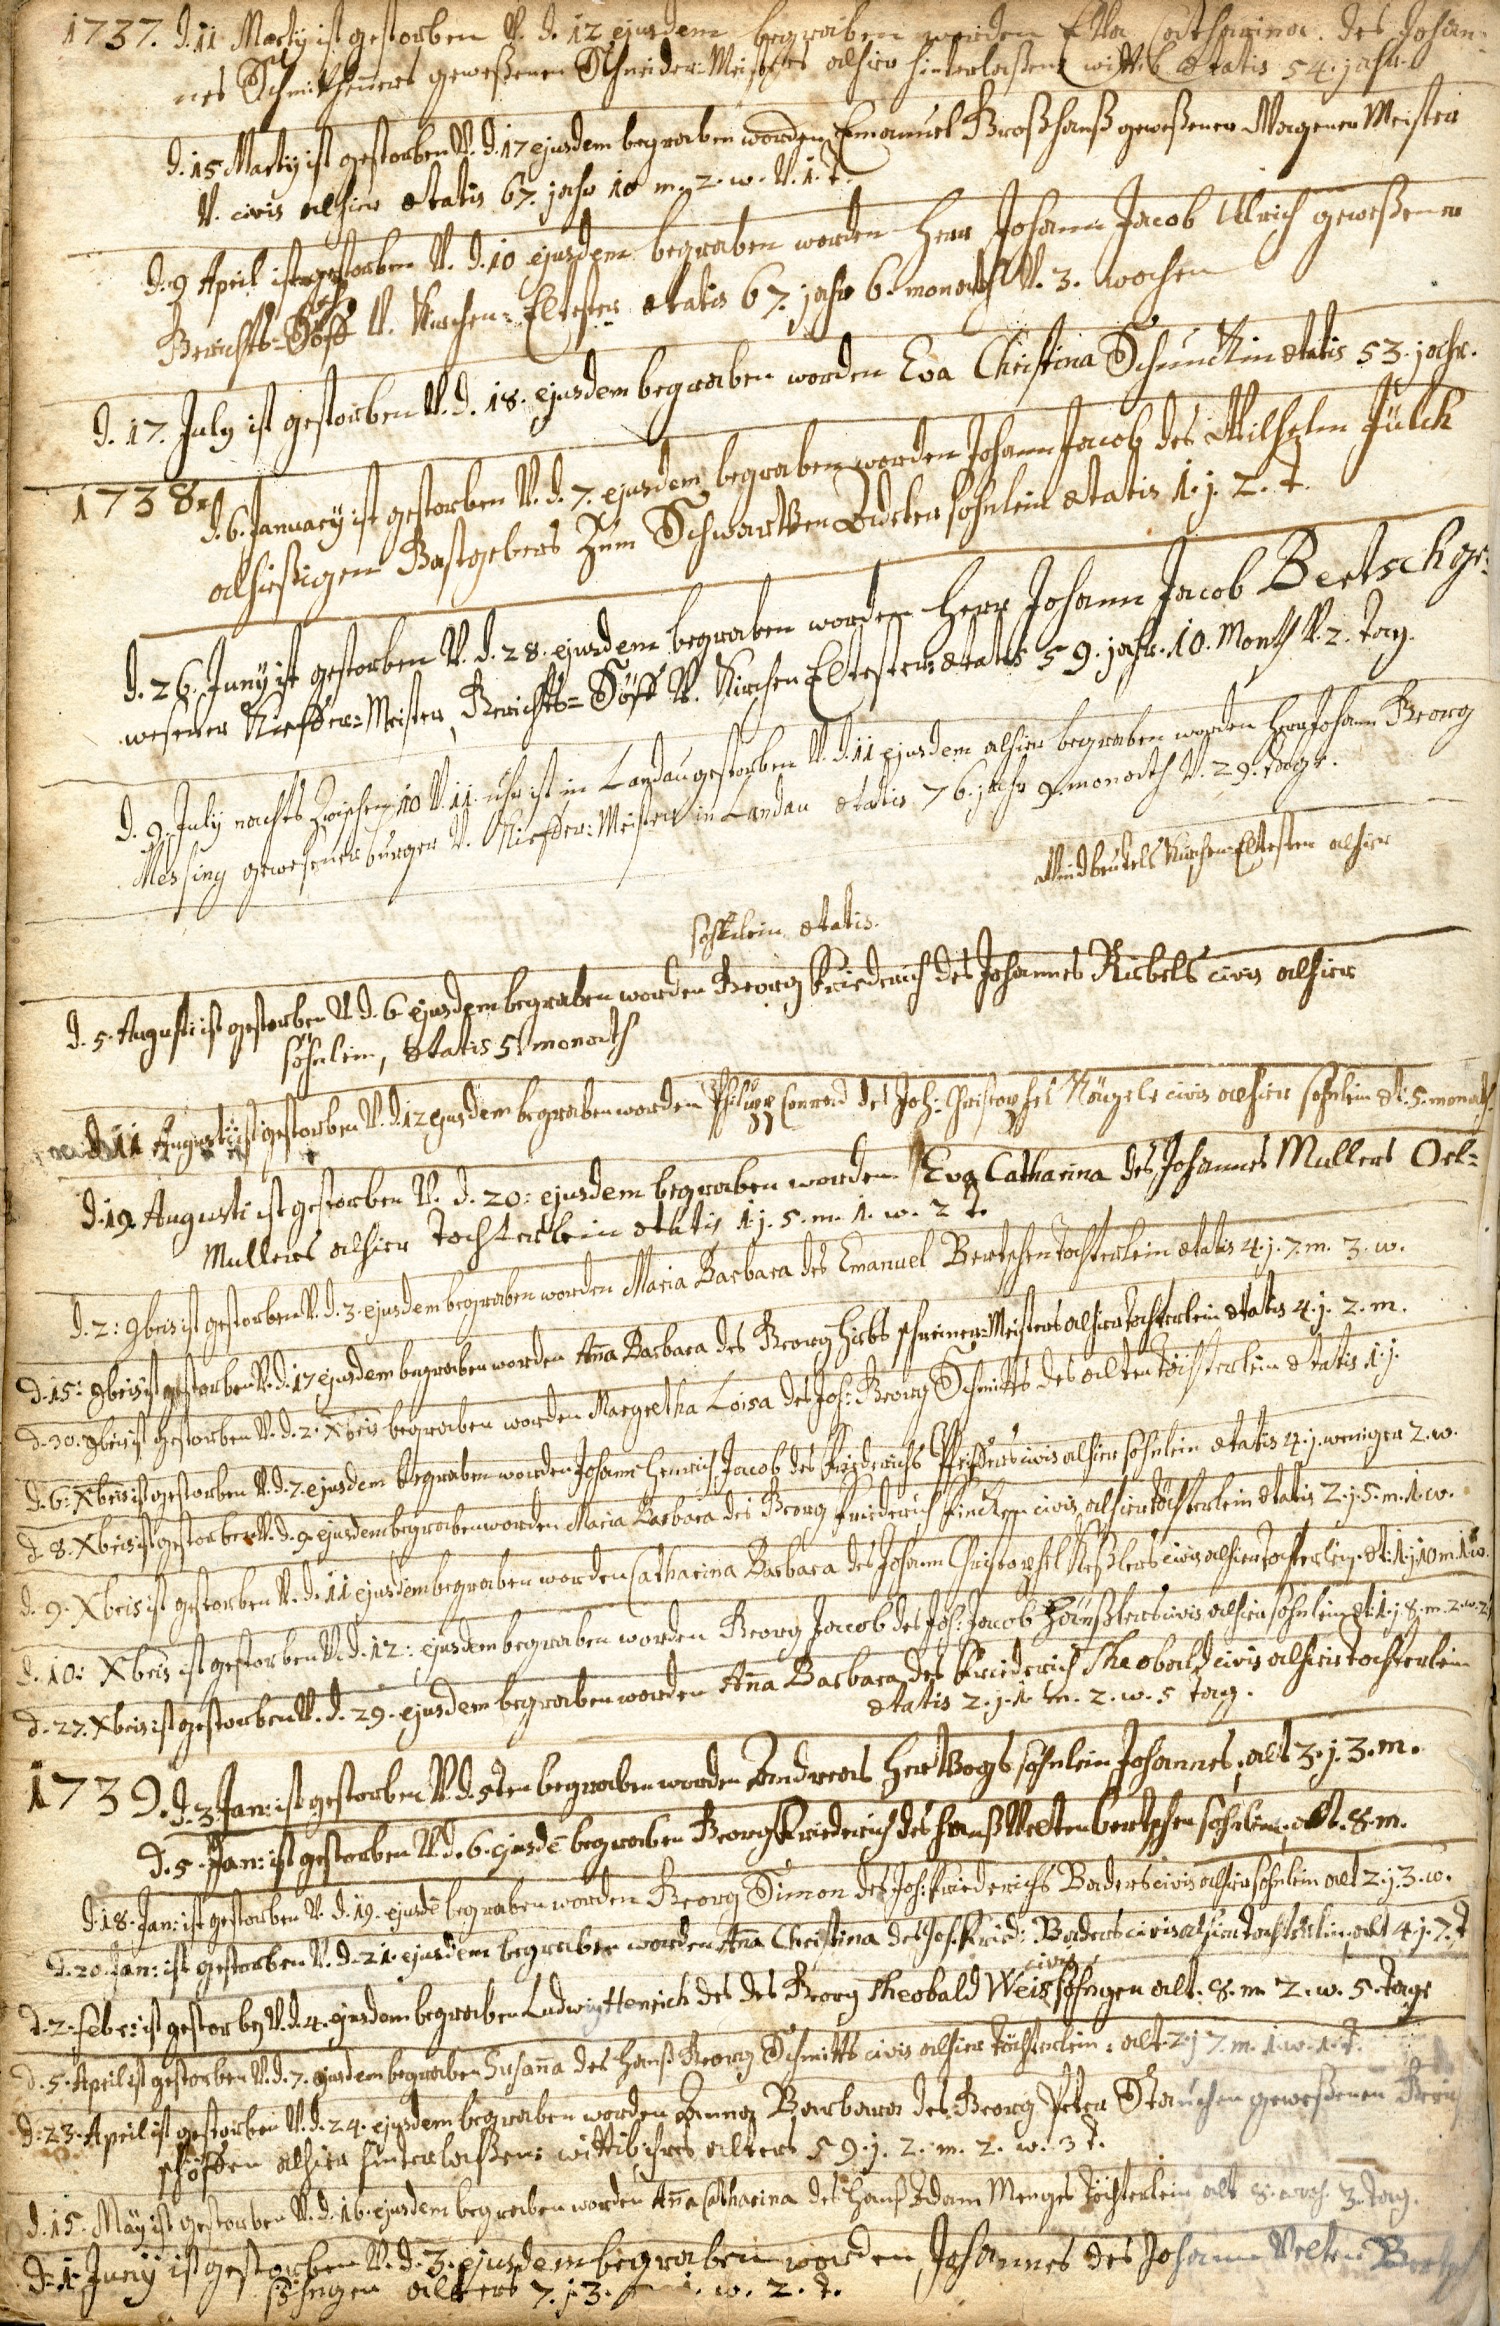 1737. d. 11 Martÿ ist gestorben U. d. 12 ejusdem begraben worden Catharina des Johan-
nes geweßenen Schneider-Meisters alhier hinterlaßene wittib ætatis 54. jahr.
d. 15 Martÿ ist gestorben U. d. 17 ejusdem begraben worden Emanuel Großhanß geweßener Wagener Meister
U. civis alhier ætatis 67. jahr 10 m. 2. w. U. 1. t.
d. 9 April ist gestorben U. d. 10 ejusdem begraben worden Herr Johann Jacob Ulrich geweßener
Gerichts-Schöff U. Kirchen-Eltester ætatis 67. jahr 6. monath U. 3. wochen
d. 17. July ist gestorben U. d. 18. ejusdem begraben worden Eva Christina Schunckin ætatis 53. jahr.
1738.
d. 6. Januarÿ ist gestorben U. d. 7. ejusdem begraben worden Johann Jacob des Wilhelm Jülch
alhießigen Gastgebers Zum Schwartzen Adler söhnlein ætatis 1. j. 2. t.
d. 26. Junÿ ist gestorben U. d. 28. ejusdem begraben worden Herr Johann Jacob Bertsch ge-
wesener Kieffer-Meister, Gerichts-Schöff U. Kirchen Eltester ætatis 59. jahr. 10. Month U. 2. tag.
d. 9. July nachts zwischen 10 U. 11. uhr ist in Landau gestorben U. d. 11 ejusdem alhier begraben worden Herr Johann Georg
Messing gewesener bürger U. Kieffer-Meister in Landau ætatis 76. jahr 9. monath U. 29. tage.
Windbeutels Kirchen-Eltesten alhier
söhnlein ætatis.
d. 5. Augusti ist gestorben U. d. 6 ejusdem begraben worden Georg Friederich des Johannes Rübels civis alhier
söhnlein, ætatis 5 monath
d. 11 Augusti ist gestorben U. d. 12 ejusdem begraben worden Philipp Conrad des Joh: Christophel Nägele civis alhier söhnlein æt: 5. monath.
d. 19. Augusti ist gestorben U. d. 20: ejusdem begraben worden Eva Catharina des Johannes Mullers Oel-
Mullers alhier Tochterlein ætatis 1. j. 5. m. 1. w. 2 t.
d. 2: 9bris ist gestorben U. d. 3. ejusdem begraben worden Maria Barbara des Emanuel Bertschen Tochterlein ætatis 4. j. 7. m. 3. w.
d. 15: 9bris ist gestorben U. d. 17 ejusdem begraben worden Aña Barbara des Georg Hirbs schreiner-Meisters alhier tochterlein ætatis 4. j. 2. m.
d. 30. 9bris ist gestorben U. d. 2. Xbris begraben worden Margretha Loisa des Joh: Georg Schmitts des alten töchterlein ætatis 1. j.
d. 6: Xbris ist gestorben U. d. 7. ejusdem begraben worden Johann Henrich Jacob des Friederichs Pfeiffers civis alhier söhnlein ætatis 4. j. weniger 2. w.
d. 8. Xbris ist gestorben U. d. 9 ejusdem begraben worden Maria Barbara des Georg Friederich Fincken civis alhier töchterlein ætatis 2. j. 5. m. 1. w.
d. 9. Xbris ist gestorben U. d. 11 ejusdem begraben worden Catharina Barbara des Johann Christophel Keßlers civis alhier Tochterlein. æt: 1. j. 10 m. 1 w.
d. 10: Xbris ist gestorben U. d. 12: ejusdem begraben worden Georg Jacob des Joh: Jacob Häußlers civis alhier söhnlein æt: 1. j. 8. m. 2. w. 2 t
d. 27. Xbris ist gestorben U. d. 29. ejusdem begraben worden Aña Barbara des Friederich Theobald civis alhier tochterlein
ætatis 2. j. 1. m. 2. w. 5 tag.
1739. d. 3. Jan: ist gestorben U. d. 5ten begraben worden Andreas Hertzogs söhnlein Johannes, alt 3. j. 3. m.
d. 5. Jan: ist gestorben U. d. 6. ejusdē begraben Georg Friederich des Hanß Velten Bertschen söhnlein, alt. 8. m.
d. 18. Jan: ist gestorben U. d. 19. ejusdē begraben worden Georg Simon des Joh: Friederichs Baders civis alhier söhnlein alt 2. j. 3. w.
d. 20. Jan: ist gestorben U. d. 21. ejusdem begraben worden Aña Christina des Joh. Frid: Baders civis alhier Tochterlein, alt 4. j. 7. t
civis
d. 2. Febr: ist gestorben U. d. 4. ejusdem begraben Ludwig Henrich des des Georg Theobald Weis söhngen alt. 8. m 2. w. 5. tage
d. 5. April ist gestorben U. d. 7. ejusdem begraben Susaña des Hanß Georg Schmitts civis alhier töchterlein, alt 2. j 7. m. 1. w. 1. t.
d: 23. April ist gestorben U. d. 24. ejusdem begraben worden Anna Barbara des Georg Peter Stauchen geweßenen
schöffen alhier hinterlaßene wittib ihres alters 59. j. 2. m. 2. w. 3 t.
d. 15. Maÿ ist gestorben U. d. 16. ejusdem begraben worden Aña Catharina des Hanß Adam Menges töchterlein alt 8. woch. 3. tag.
d. 1. Junÿ ist gestorben U. d. 3. ejusdem begraben worden Johannes des Johann Velten
söhngen alters 7. j. 3. m 1. w. 2. t.